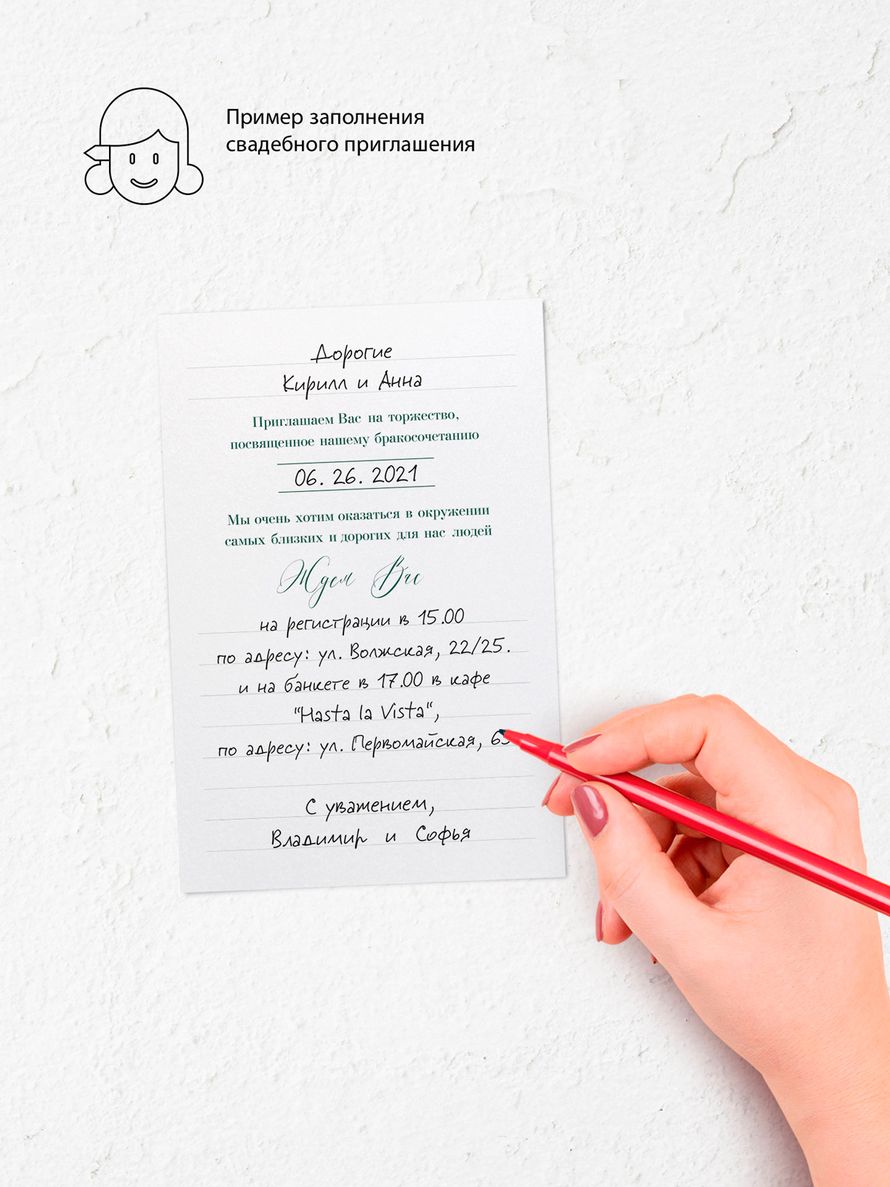 Пример заполнения
свадебного приглашения
Дорогие
Кирилл и Анна
Приглашаем Вас на торжество,
посвященное нашему бракосочетанию
06. 26. 2021
Мы очень хотим оказаться в окружении
самых близких и дорогих для нас людей
Ждем Вас
на регистрации в 15.00
по адресу: ул. Волжская, 22/25.
и на банкете в 17.00 в кафе
"Hasta la Vista",
по адресу: ул. Первомайская,
С уважением,
Владимир и Софья